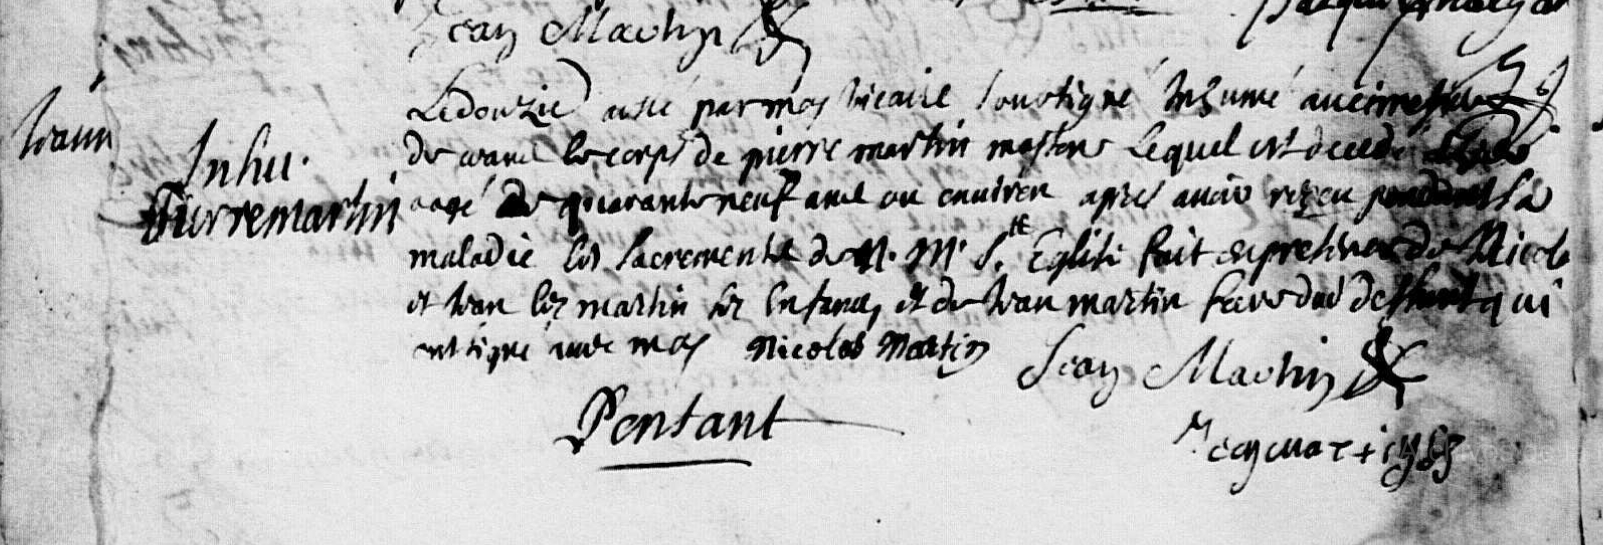 Jean Martin
Inhu.
Pierre martin
Le douzie a esté par moy vicaire soussigné Inhumé au cimetiere
de wanne le corps de pierre martin lequel est decedé
aagé de quarante neuf ans ou environ apres avoir reçeu pendant sa
maladie les sacrements de N. M. Ste Eglise fait en presence de Nicolas
et Jean les martin ses enfans, et de Jean martin frere dud deffunt qui
ont signé avec moy Nicolas Martin
Jean Martin
Pentant